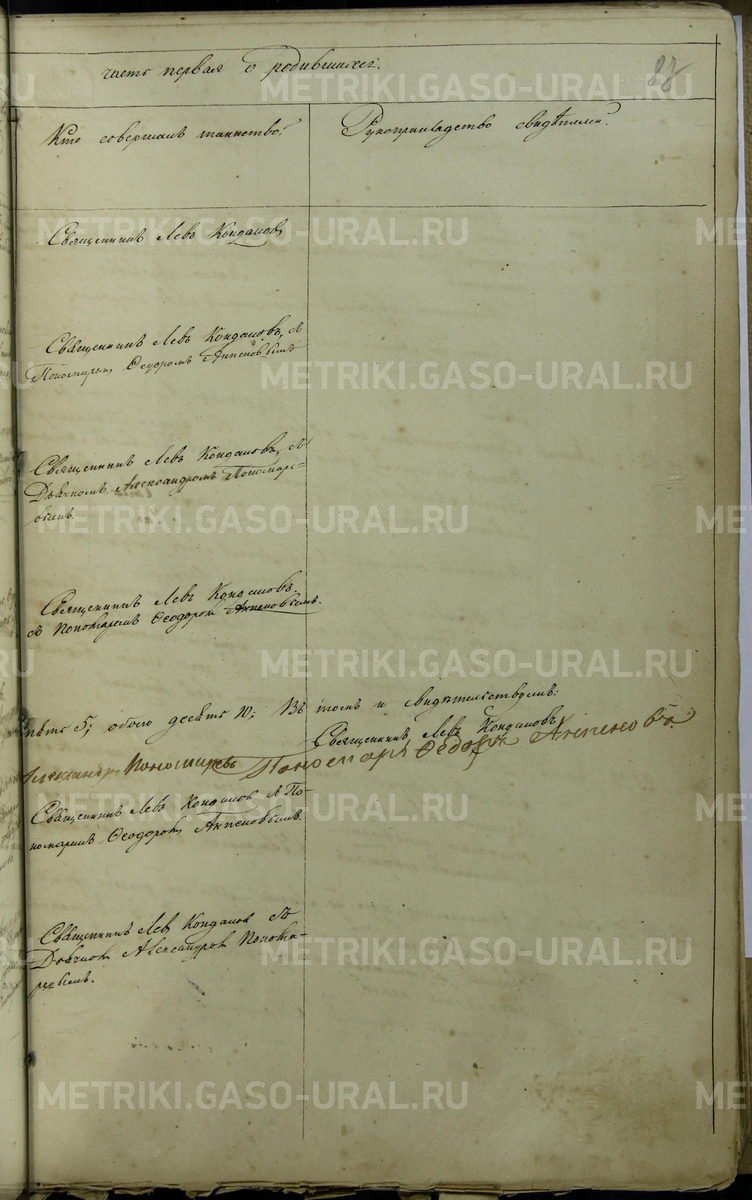 часть первая о родившихся.
28
Кто совершалъ таинство.
Рукоприкладство свидѣтелей.
Священникъ Левъ Кондаковъ
Священникъ Левъ Кондаковъ, съ
Пономаремъ Ѳеодоромъ
Священникъ Левъ Кондаковъ, съ
Дьячкомъ Александромъ Пономаре-
вымъ
Священникъ Левъ Кондаковъ.
съ Пономаремъ Ѳеодоромъ
пять 5; обоего десять 10; Въ томъ и свидѣтельствуемъ:
Священникъ Левъ Кондаковъ
Александръ Пономаревъ Пономарь Ѳедоръ
Священникъ Левъ Кондаковъ съ По-
номаремъ Ѳеодоромъ
Священникъ Левъ Кондаковъ съ
Дьячкомъ Александромъ Понома-
ревымъ.
METRIKI.GASO-URAL.RU
METRIKI.GASO-URAL.RU
METRIKI.GASO-URAL.RU
METRIKI.GASO-URAL.RU
METRIKI.GASO-URAL.RU
METRIKI.GASO-URAL.RU
METRIKI.GASO-URAL.RU
METRIKI.GASO-URAL.RU